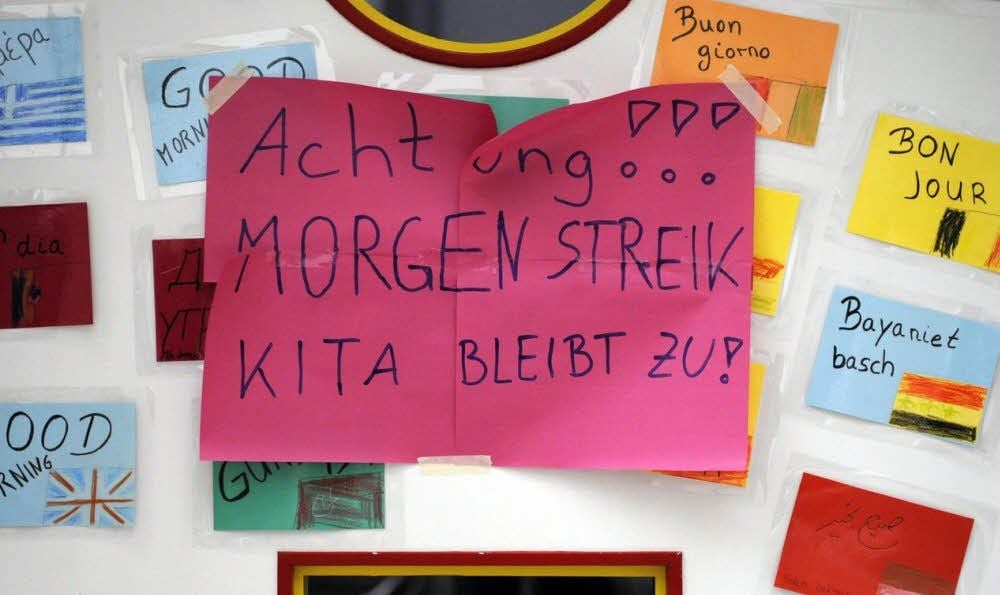 GOOD
MORN
Buon
giorno
Achtung...!!!
MORGEN STREIK
KITA BLEIBT ZU!
BON
JOUR
dia
Д
УТР
Bayaniet
basch
OOD
RNING
صباح الخير